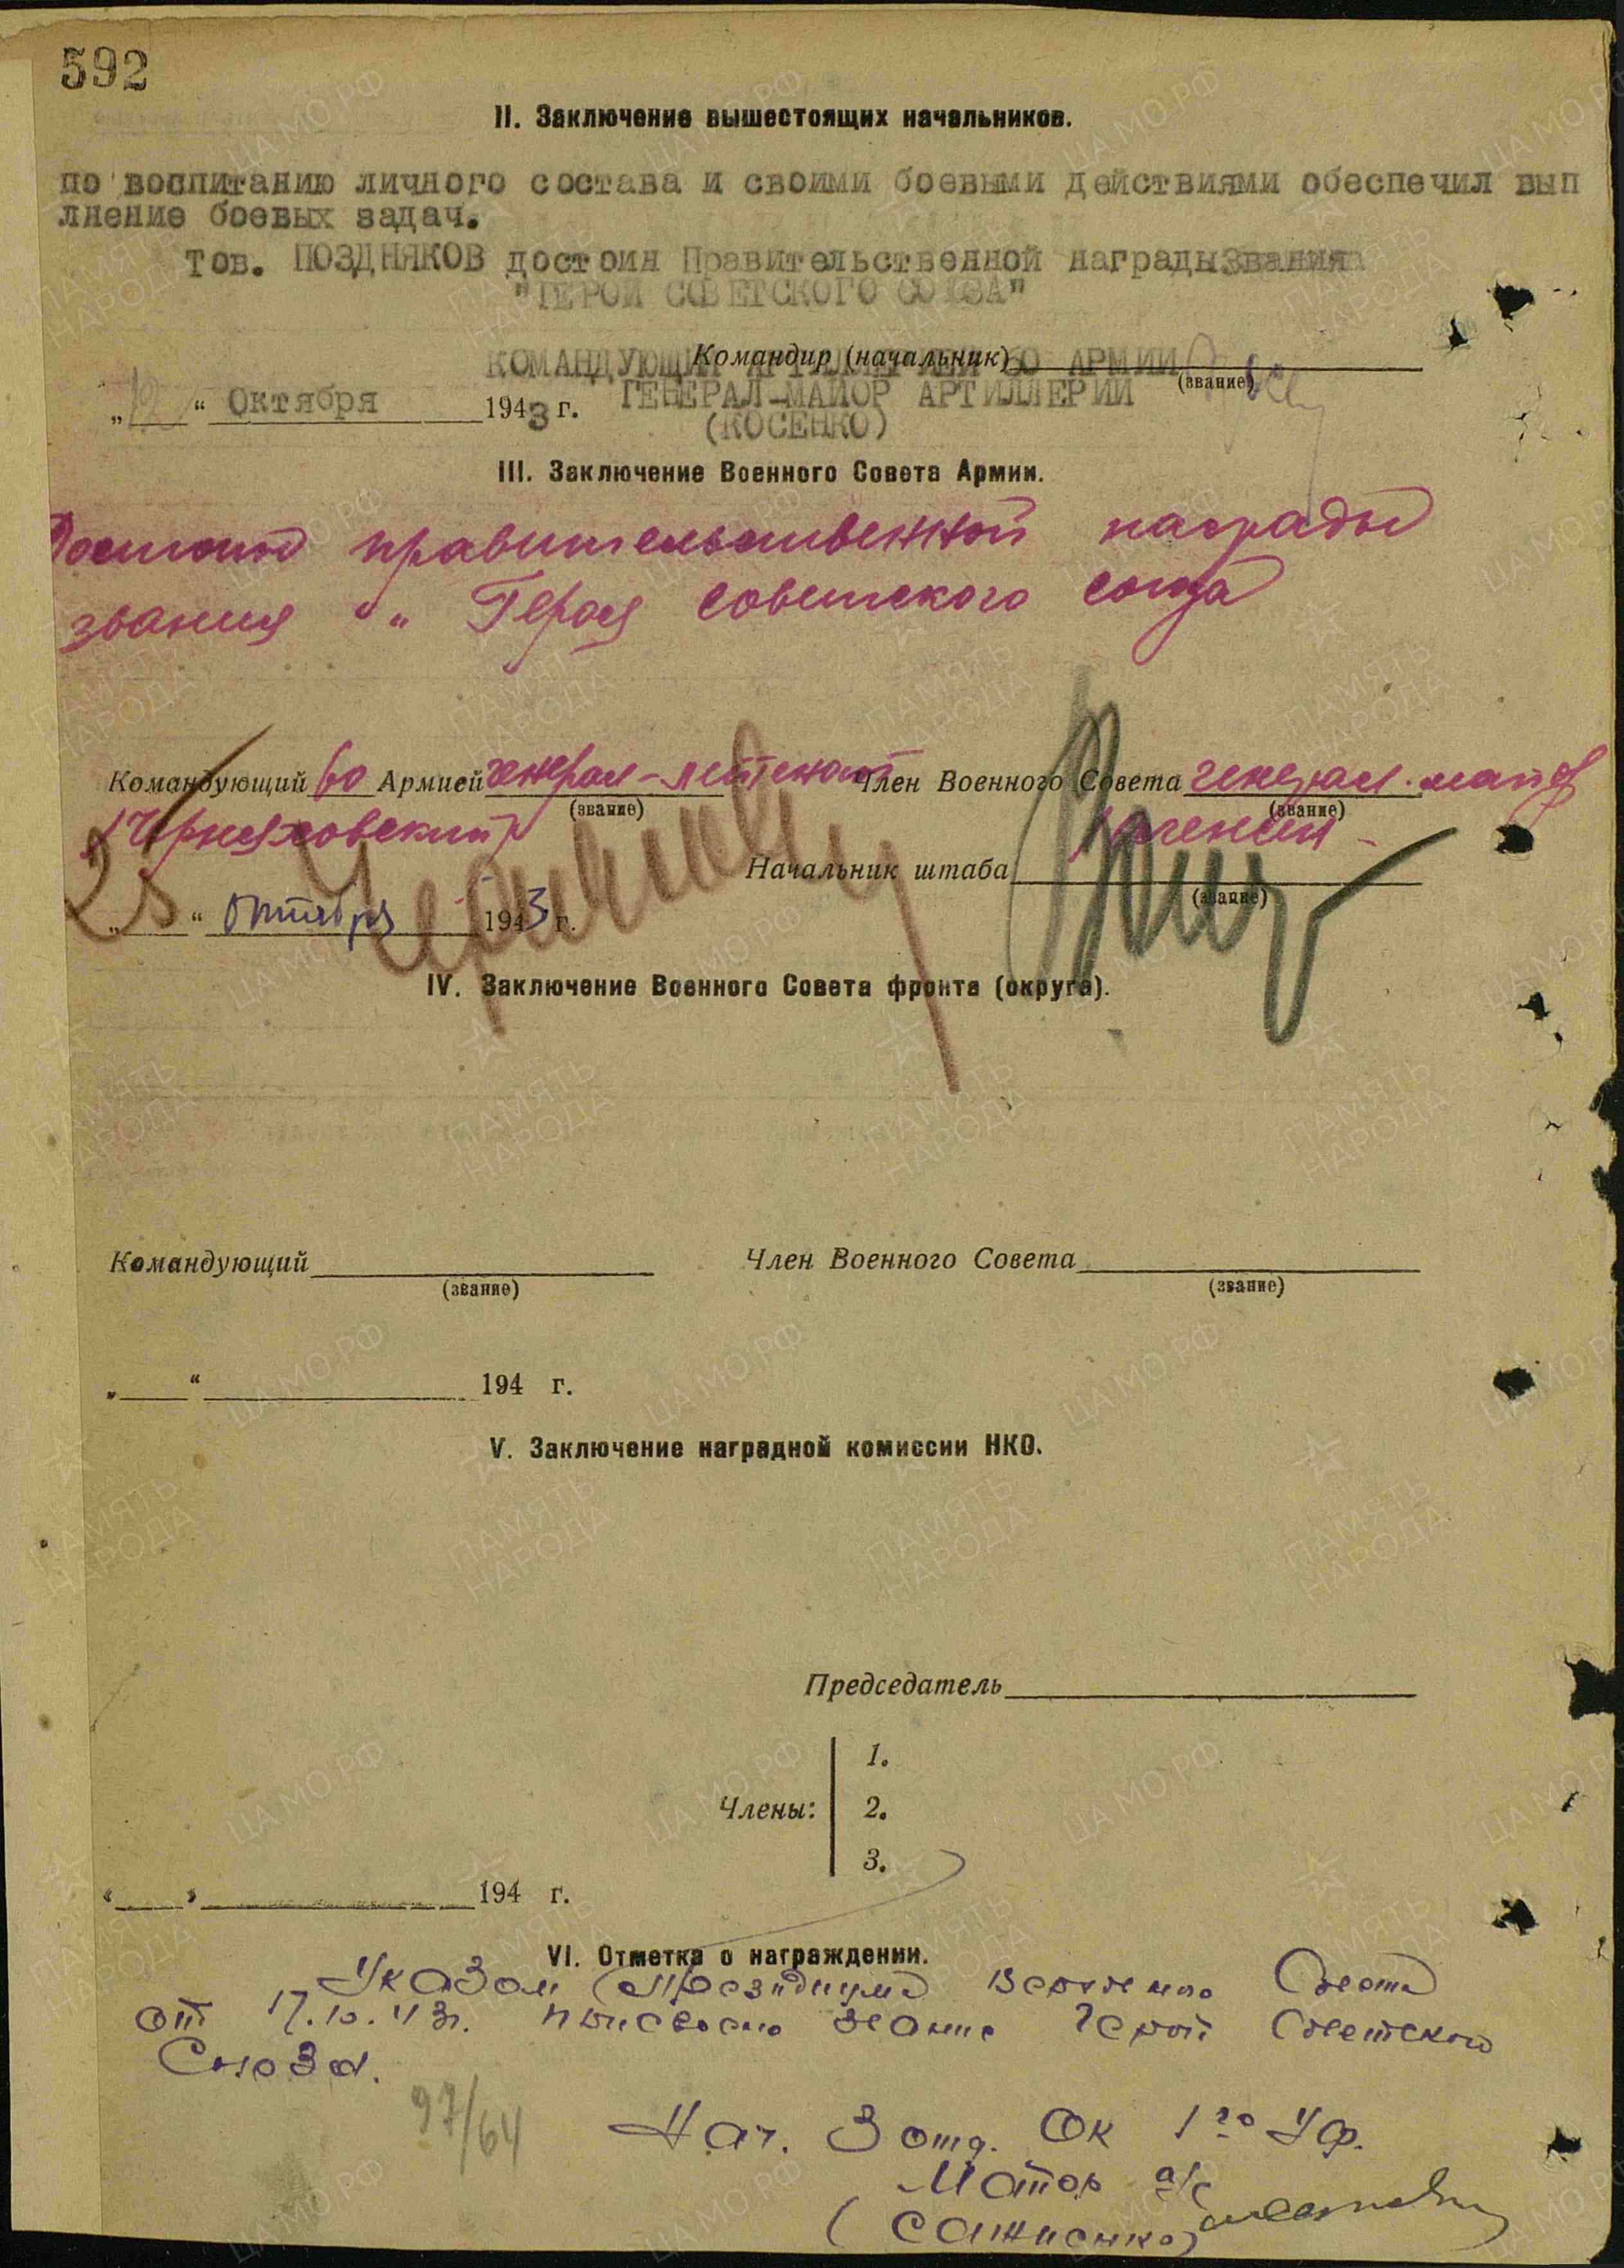 592
II. Заключение вышестоящих начальников.
по воспитанию личного состава и своими боевыми действиями обеспечил вып
лнение боевых задач.
Тов. ПОЗДНЯКОВ достоин Правительственной наградызвания
"ГЕРОЙ СОВЕТСКОГО СОЮЗА"
Командир (начальник)
КОМАНДУЮЩИЙ АРТИЛЛЕРИЕЙ 60 АРМИИ
(звание)
„12“ Октября 1943 г. ГЕНЕРАЛ-МАЙОР АРТИЛЛЕРИИ
(КОСЕНКО)
III. Заключение Военного Совета Армии.
Достоин правительственной награды
звания „ Героя Советского союза
Командующий 60 Армией генерал-лейтенант Член Военного Совета генерал-майор
(звание) (звание)
/Черняховский/
Начальник штаба
(звание)
„25“ октября 1943 г.
IV. Заключение Военного Совета фронта (округа).
Командующий Член Военного Совета
(звание) (звание)
„ “ 194 г.
V. Заключение наградной комиссии НКО.
Председатель
1.
Члены: 2.
3.
„ “ 194 г.
VI. Отметка о награждении.
Указом Президиума Верховного Совета
от 17.10.43г. присвоено звание Герой Советского
Союза.
97/64
Нач. 3 отд. ОК 1го Уф.
Майор а/с
ЦАМО РФ
ПАМЯТЬ НАРОДА